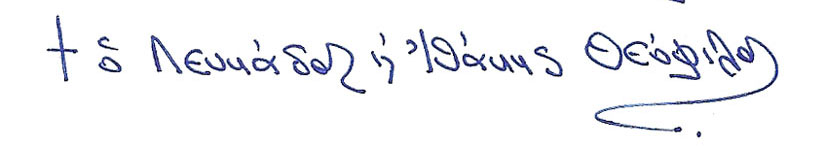 † ὁ Λευκάδος ἠ Ἰθάκης Θεόφιλος